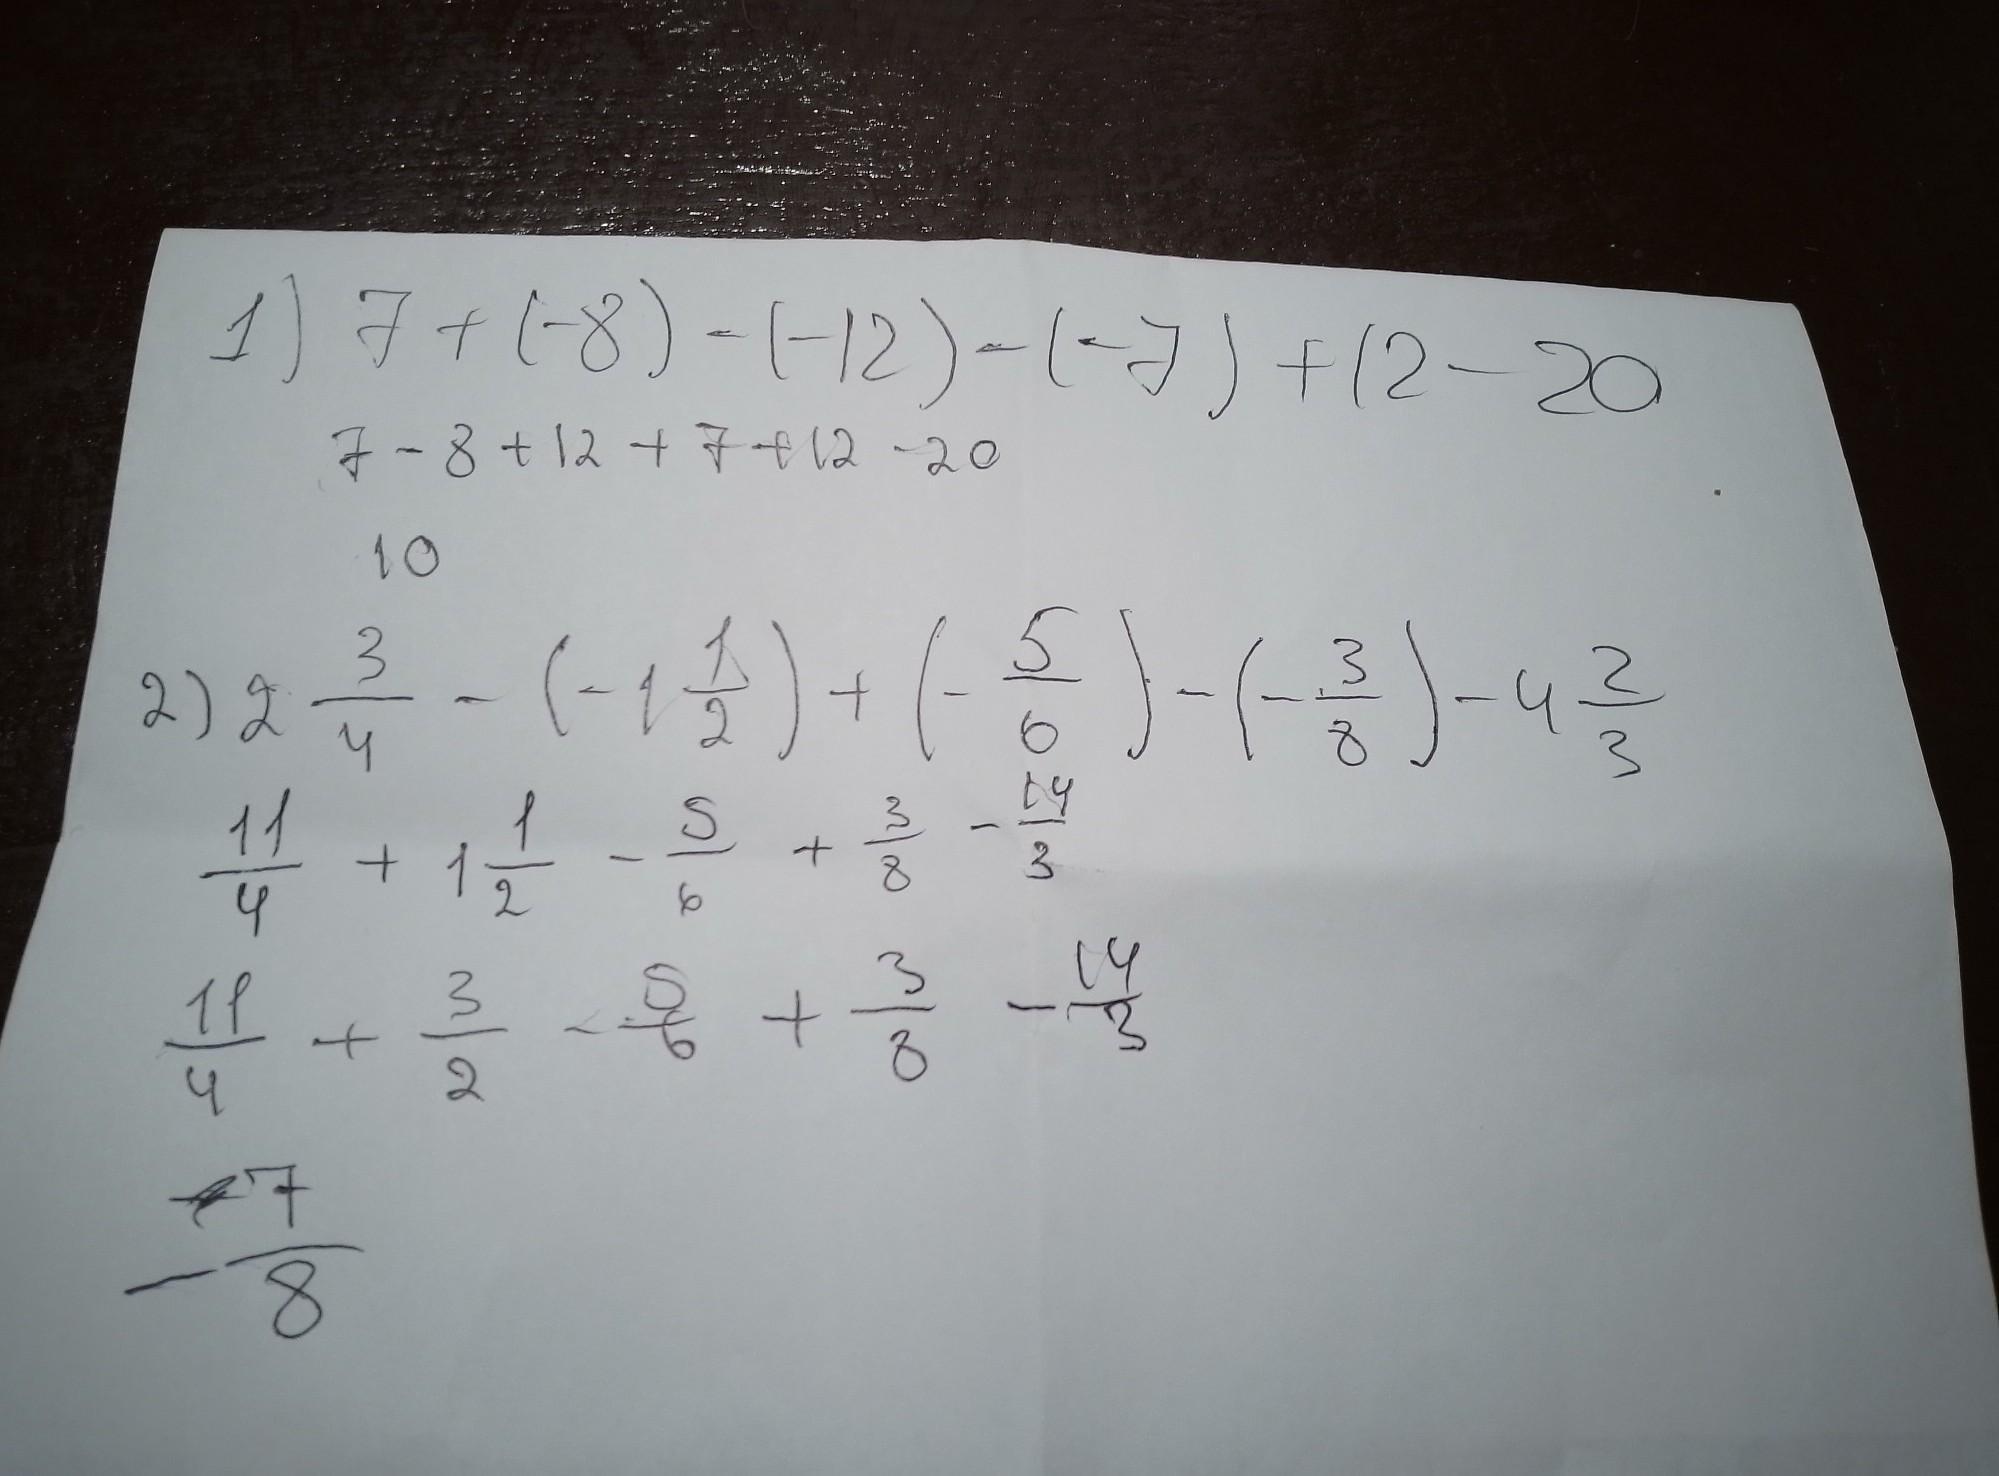 1) 7 + (-8) - (-12) - (-7) + 12 - 20
7 - 8 + 12 + 7 + 12 - 20
10
2) 2 3/4 - (-1 1/2) + (- 5/6) - (- 3/8) - 4 2/3
11/4 + 1 1/2 - 5/6 + 3/8 - 14/3
11/4 + 3/2 - 5/6 + 3/8 - 14/3
- 7/8